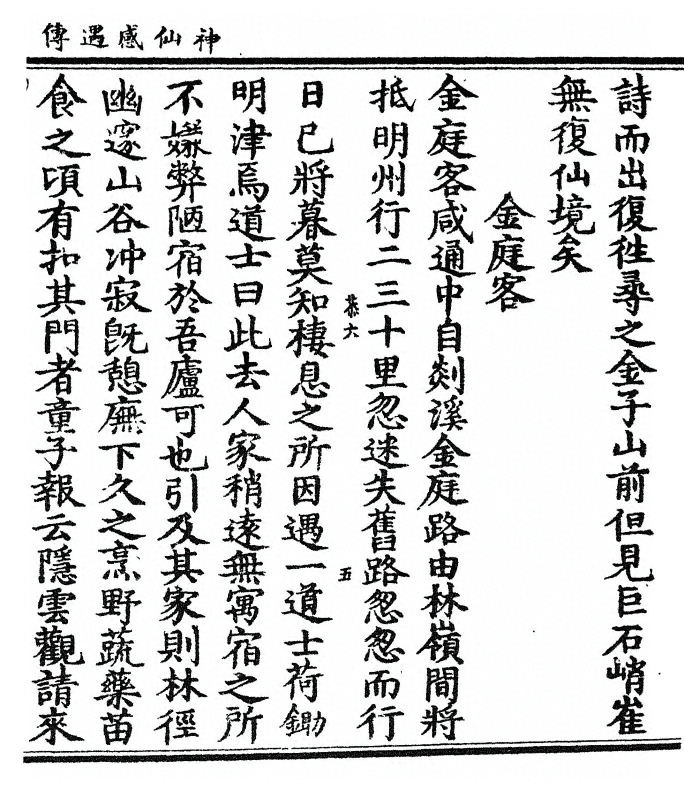 神仙感遇傳
詩而出復徃尋之金子山前但見巨石峭崔
無復仙境矣
金庭客
金庭客咸通中自剡溪金庭路由林嶺間將
抵明州行二三十里忽迷失舊路怱怱而行
恭六
五
日已將暮莫知棲息之所因遇一道士荷鋤
明津焉道士曰此去人家稍遠無寓宿之所
不嫌弊陋宿於吾廬可也引及其家則林徑
幽邃山谷冲寂既憩廡下久之烹野蔬藥苗
食之頃有扣其門者童子報云隱雲觀請來